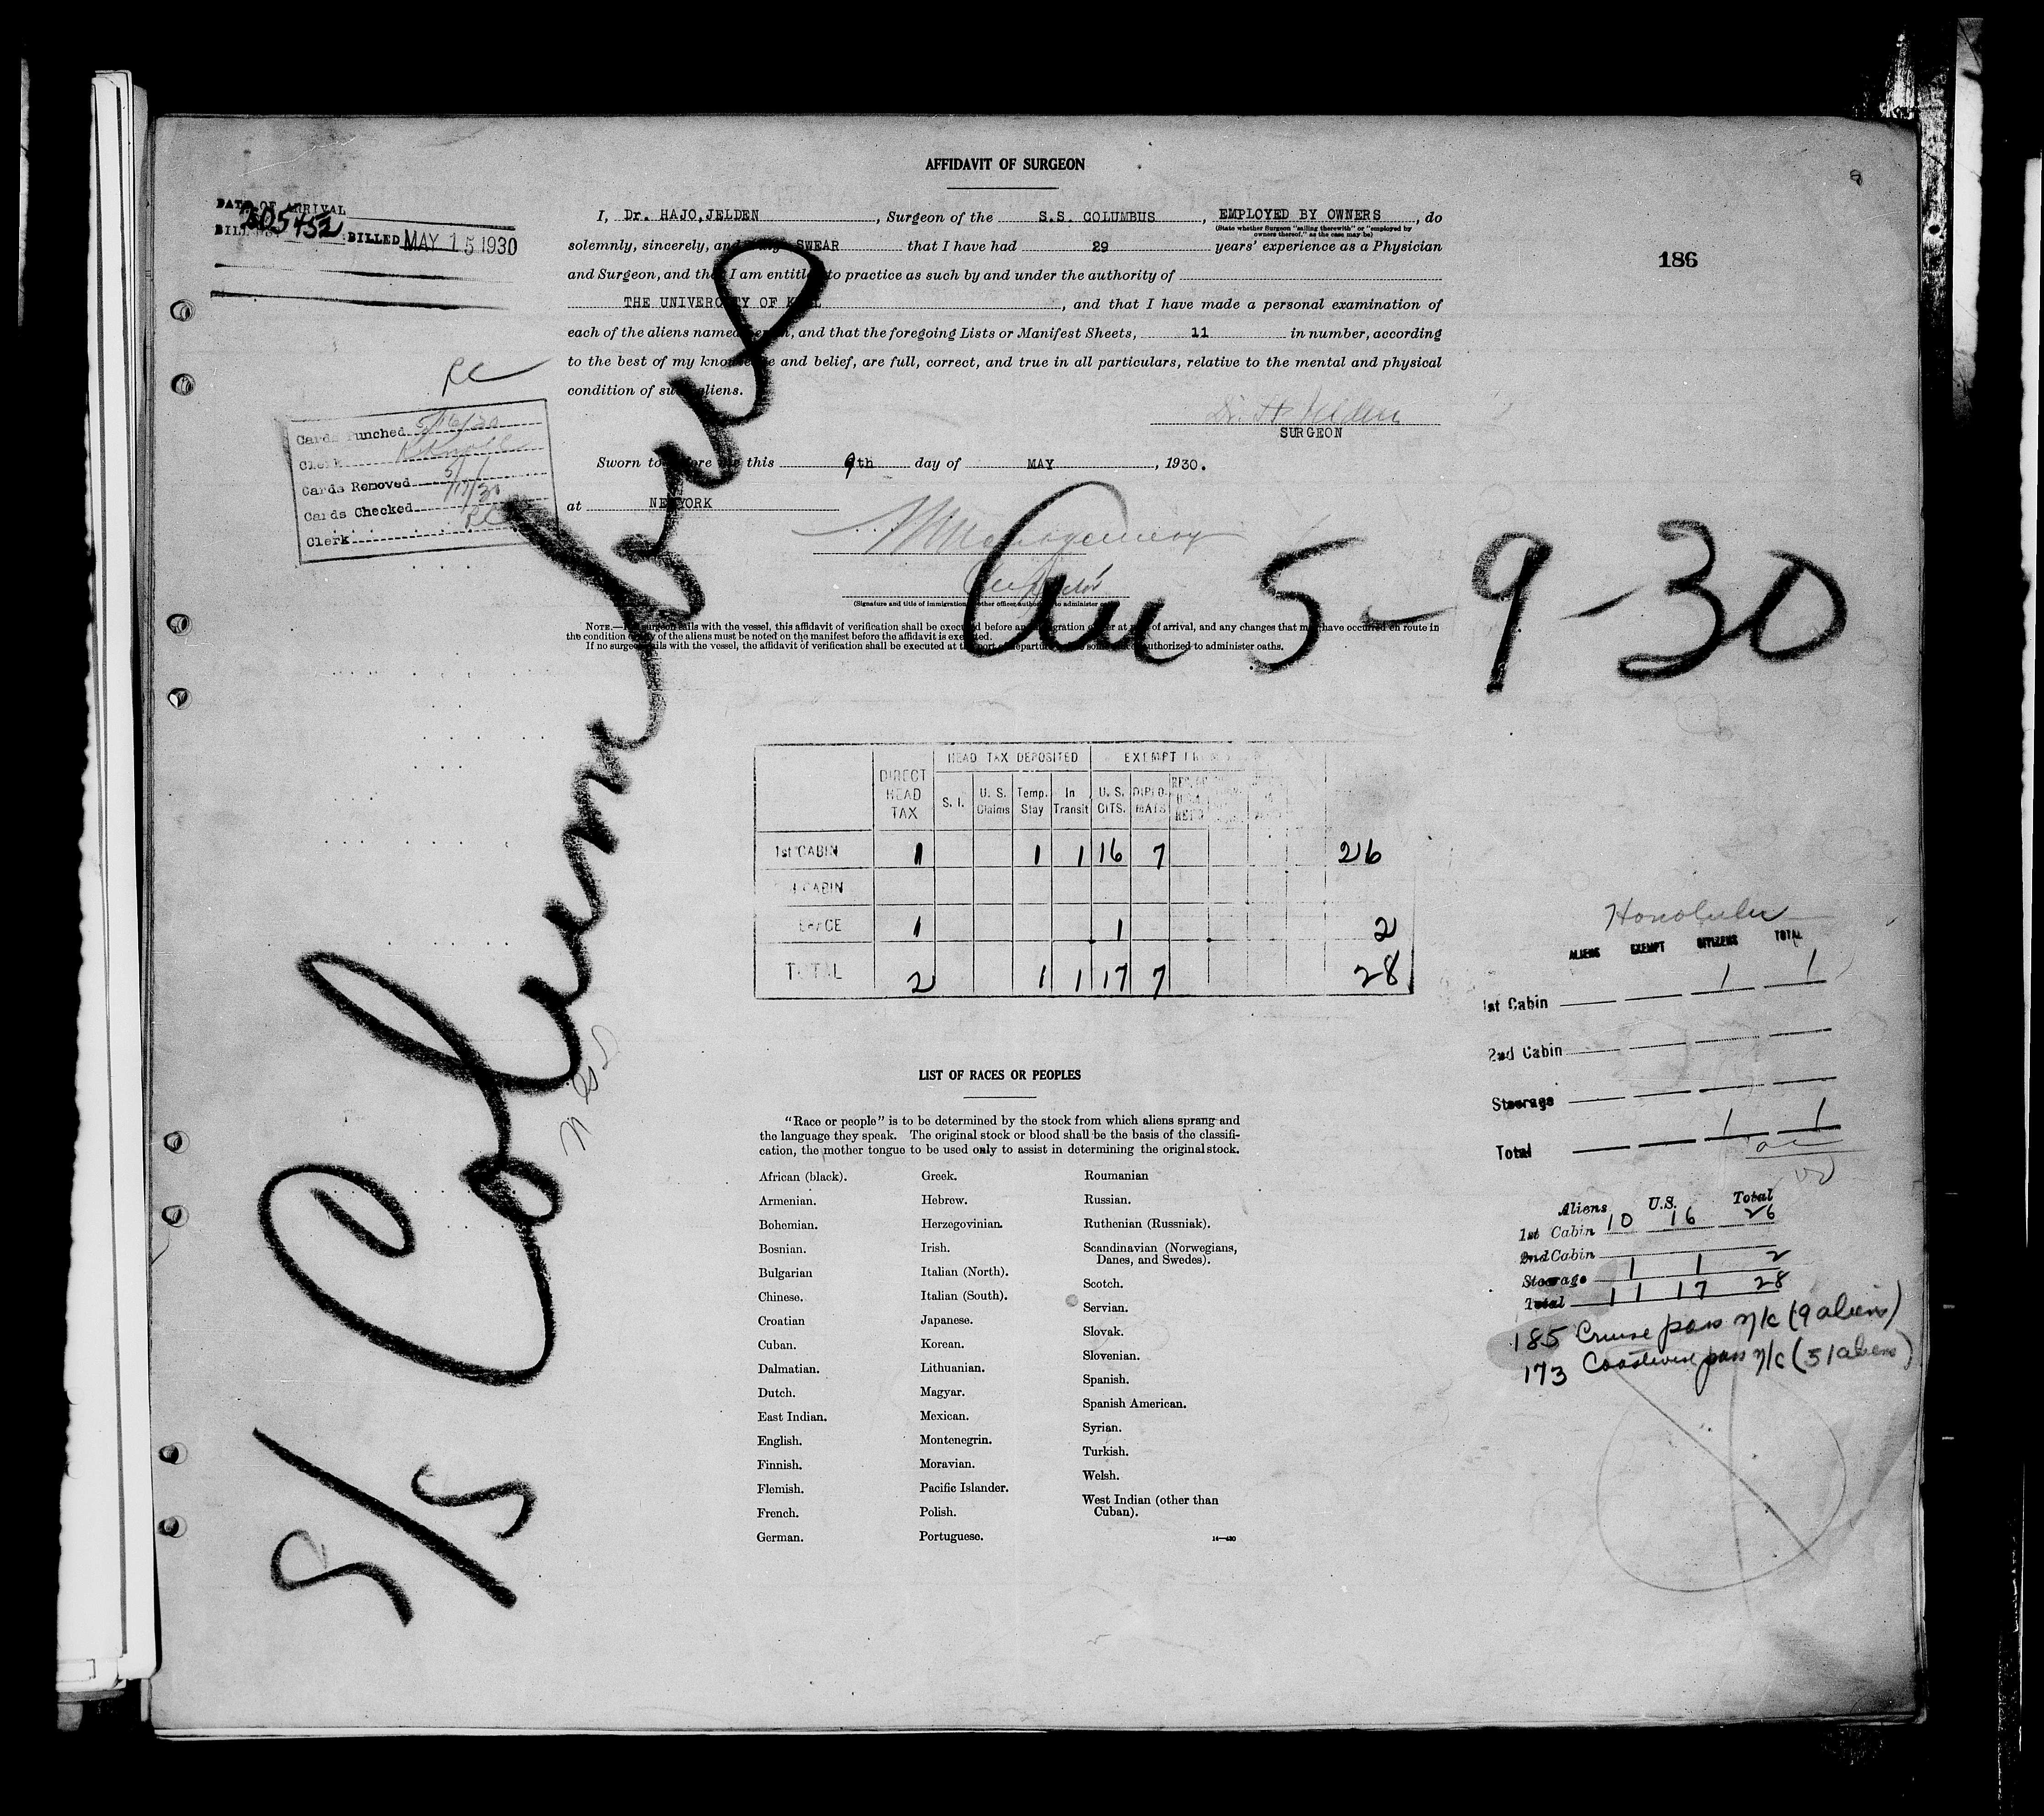 AFFIDAVIT OF SURGEON
DATE OF ARRIVAL
205452
BILLED MAY 15 1930
186
I, Dr. HAJO, JELDEN, Surgeon of the S.S. COLUMBUS, EMPLOYED BY OWNERS, do
(State whether Surgeon "sailing therewith" or "employed by
owners thereof," as the case may be)
solemnly, sincerely, and SWEAR that I have had 29 years' experience as a Physician
and Surgeon, and that I am entitled to practice as such by and under the authority of
THE UNIVERCITY OF KIEL, and that I have made a personal examination of
each of the aliens named herein, and that the foregoing Lists or Manifest Sheets, 11 in number, according
to the best of my knowledge and belief, are full, correct, and true in all particulars, relative to the mental and physical
condition of such aliens.
Dr. H. Jelden
SURGEON
Sworn to before me this 9th day of MAY, 1930.
at NEWYORK
Montgomery
Inspector
(Signature and title of immigration or other officer authorized to administer
NOTE.—If surgeon sails with the vessel, this affidavit of verification shall be executed before an immigration officer at port of arrival, and any changes that may have occurred en route in
the condition of any of the aliens must be noted on the manifest before the affidavit is executed.
If no surgeon sails with the vessel, the affidavit of verification shall be executed at the port of departure some officer authorized to administer oaths.
RC
Cards Punched 5/16/30
Clerk
Cards Removed 5/
Cards Checked 17/30
Clerk RC
S/S Columbus
Arr 5-9-30
DIRECT HEAD TAX
HEAD TAX DEPOSITED
EXEMPT FROM
S. I.
U. S. Claims
Temp. Stay
In Transit
U. S. CITS.
DIPLO-MATS
1st CABIN 1 1 1 16 7 26
CABIN
1 1 2
TOTAL 2 1 1 17 7 28
Honolulu
ALIENS EXEMPT CITIZENS TOTAL
1st Cabin 1 1
2nd Cabin
Steerage
Total 1 1
Aliens U.S. Total
1st Cabin 10 16 26
2nd Cabin
Steerage 1 1 2
Total 11 17 28
185 Cruise pass n/c (9 aliens)
173 Coastwise pass n/c (51 aliens)
LIST OF RACES OR PEOPLES
"Race or people" is to be determined by the stock from which aliens sprang and
the language they speak. The original stock or blood shall be the basis of the classifi-
cation, the mother tongue to be used only to assist in determining the original stock.
African (black).
Armenian.
Bohemian.
Bosnian.
Bulgarian
Chinese.
Croatian
Cuban.
Dalmatian.
Dutch.
East Indian.
English.
Finnish.
Flemish.
French.
German.
Greek.
Hebrew.
Herzegovinian.
Irish.
Italian (North).
Italian (South).
Japanese.
Korean.
Lithuanian.
Magyar.
Mexican.
Montenegrin.
Moravian.
Pacific Islander.
Polish.
Portuguese.
Roumanian
Russian.
Ruthenian (Russniak).
Scandinavian (Norwegians,
Danes, and Swedes).
Scotch.
Servian.
Slovak.
Slovenian.
Spanish.
Spanish American.
Syrian.
Turkish.
Welsh.
West Indian (other than
Cuban).
14—430